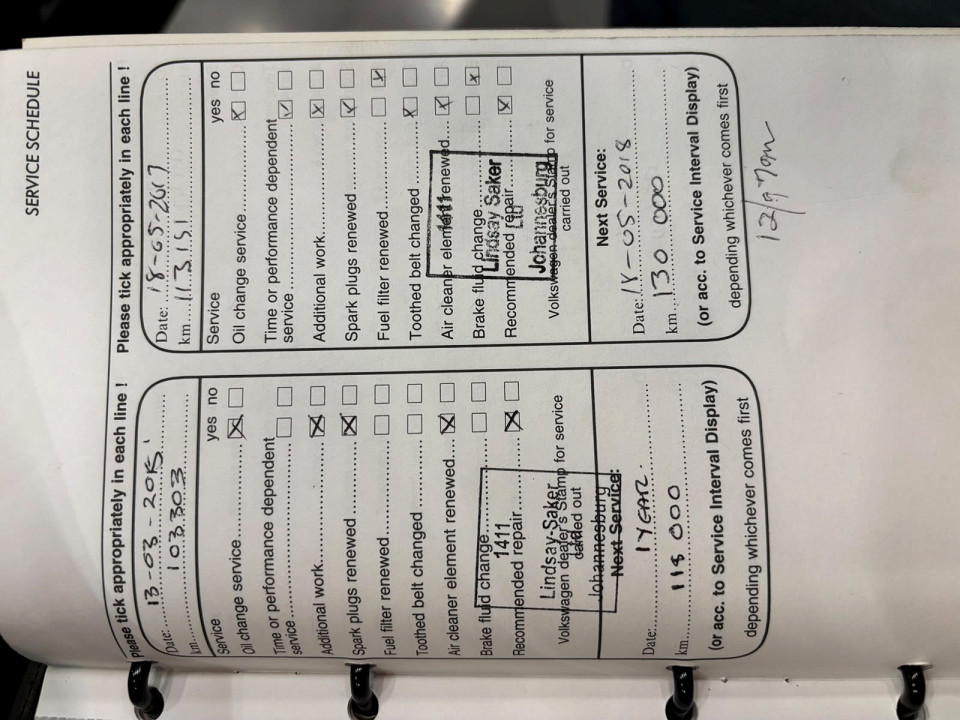 SERVICE SCHEDULE
Please tick appropriately in each line !
Date: 13-03-2015
km 103303
Service yes no
Oil change service
Time or performance dependent
service
Additional work
Spark plugs renewed
Fuel filter renewed
Toothed belt changed
Air cleaner element renewed
Brake fluid change
Recommended repair
1411
Lindsay Saker
Johannesburg
Volkswagen dealer's Stamp for service
carried out
Next Service:
Date: 1 YEAR.
km 118 000
(or acc. to Service Interval Display)
depending whichever comes first
Please tick appropriately in each line !
Date: 18-05-2017
km 113151
Service yes no
Oil change service
Time or performance dependent
service
Additional work
Spark plugs renewed
Fuel filter renewed
Toothed belt changed
Air cleaner element renewed
Brake fluid change
Recommended repair
1411
Lindsay Saker
Ltd
Johannesburg
Volkswagen dealer's Stamp for service
carried out
Next Service:
Date: 18-05-2018
km 130 000
(or acc. to Service Interval Display)
depending whichever comes first